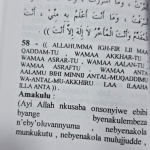 وَمَا أَسْرَفْتُ، وَمَا أَنْتَ أَعْلَمُ بِهِ مِنِّي، أَنْتَ
الْمُقَدِّمُ وَأَنْتَ الْمُؤَخِّرُ لَا إِلَهَ إِلَّا أَنْتَ
58 - (( ALLAHUMMA IGH-FIR LII MAA
QADDAM-TU , WAMAA AKKHAR-TU
WAMAA ASRAR-TU , WAMAA AALAN-TU
WAMAA ASRAFTU WAMAA ANTA
AALAMU BIHI MINNII ANTAL-MUQADDIMU
WA-ANTAL-MU-AKKHIRU LAA ILAAHA
ILLA ANTA )) .
Amakulu :
(Ayi Allah nkusaba onsonyiwe ebibi
byange byenakulembeza
n'eby'oluvannyuma , nebyenakola
munkukutu , nebyenakola mulujjudde ,